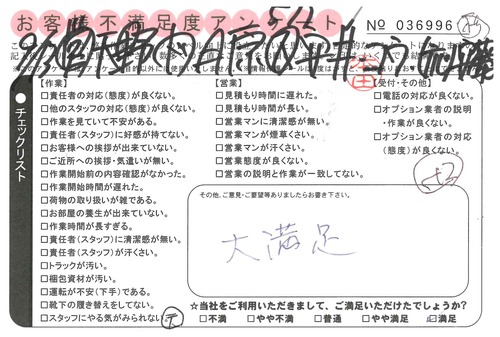 お客様不満足度アンケート
№ 036996
チェックリスト
【作業】
□責任者の対応(態度)が良くない。
□他のスタッフの対応(態度)が良くない。
□作業を見ていて不安がある。
□責任者(スタッフ)に好感が持てない。
□お客様への挨拶が出来ていない。
□ご近所への挨拶・気遣いが無い。
□作業開始前の内容確認がなかった。
□作業開始時間が遅れた。
□荷物の取り扱いが雑である。
□お部屋の養生が出来ていない。
□作業時間が長すぎる。
□責任者(スタッフ)に清潔感が無い。
□責任者(スタッフ)が汗くさい。
□トラックが汚い。
□梱包資材が汚い。
□運転が不安(下手)である。
□靴下の履き替えをしてない。
□スタッフにやる気がみられない。
【営業】
□見積もり時間に遅れた。
□見積もり時間が長い。
□営業マンに清潔感が無い。
□営業マンが煙草くさい。
□営業マンが汗くさい。
□営業態度が良くない。
□営業の説明と作業が一致してない。
【受付・その他】
□電話の対応が良くない。
□オプション業者の説明
・作業が良くない。
□オプション業者の対応
(態度)が良くない。
その他、ご意見・ご要望等ありましたらお書き下さい。
大満足
☆当社をご利用いただきまして、ご満足いただけたでしょうか?
□不満 □やや不満 □普通 □やや満足 ☑満足